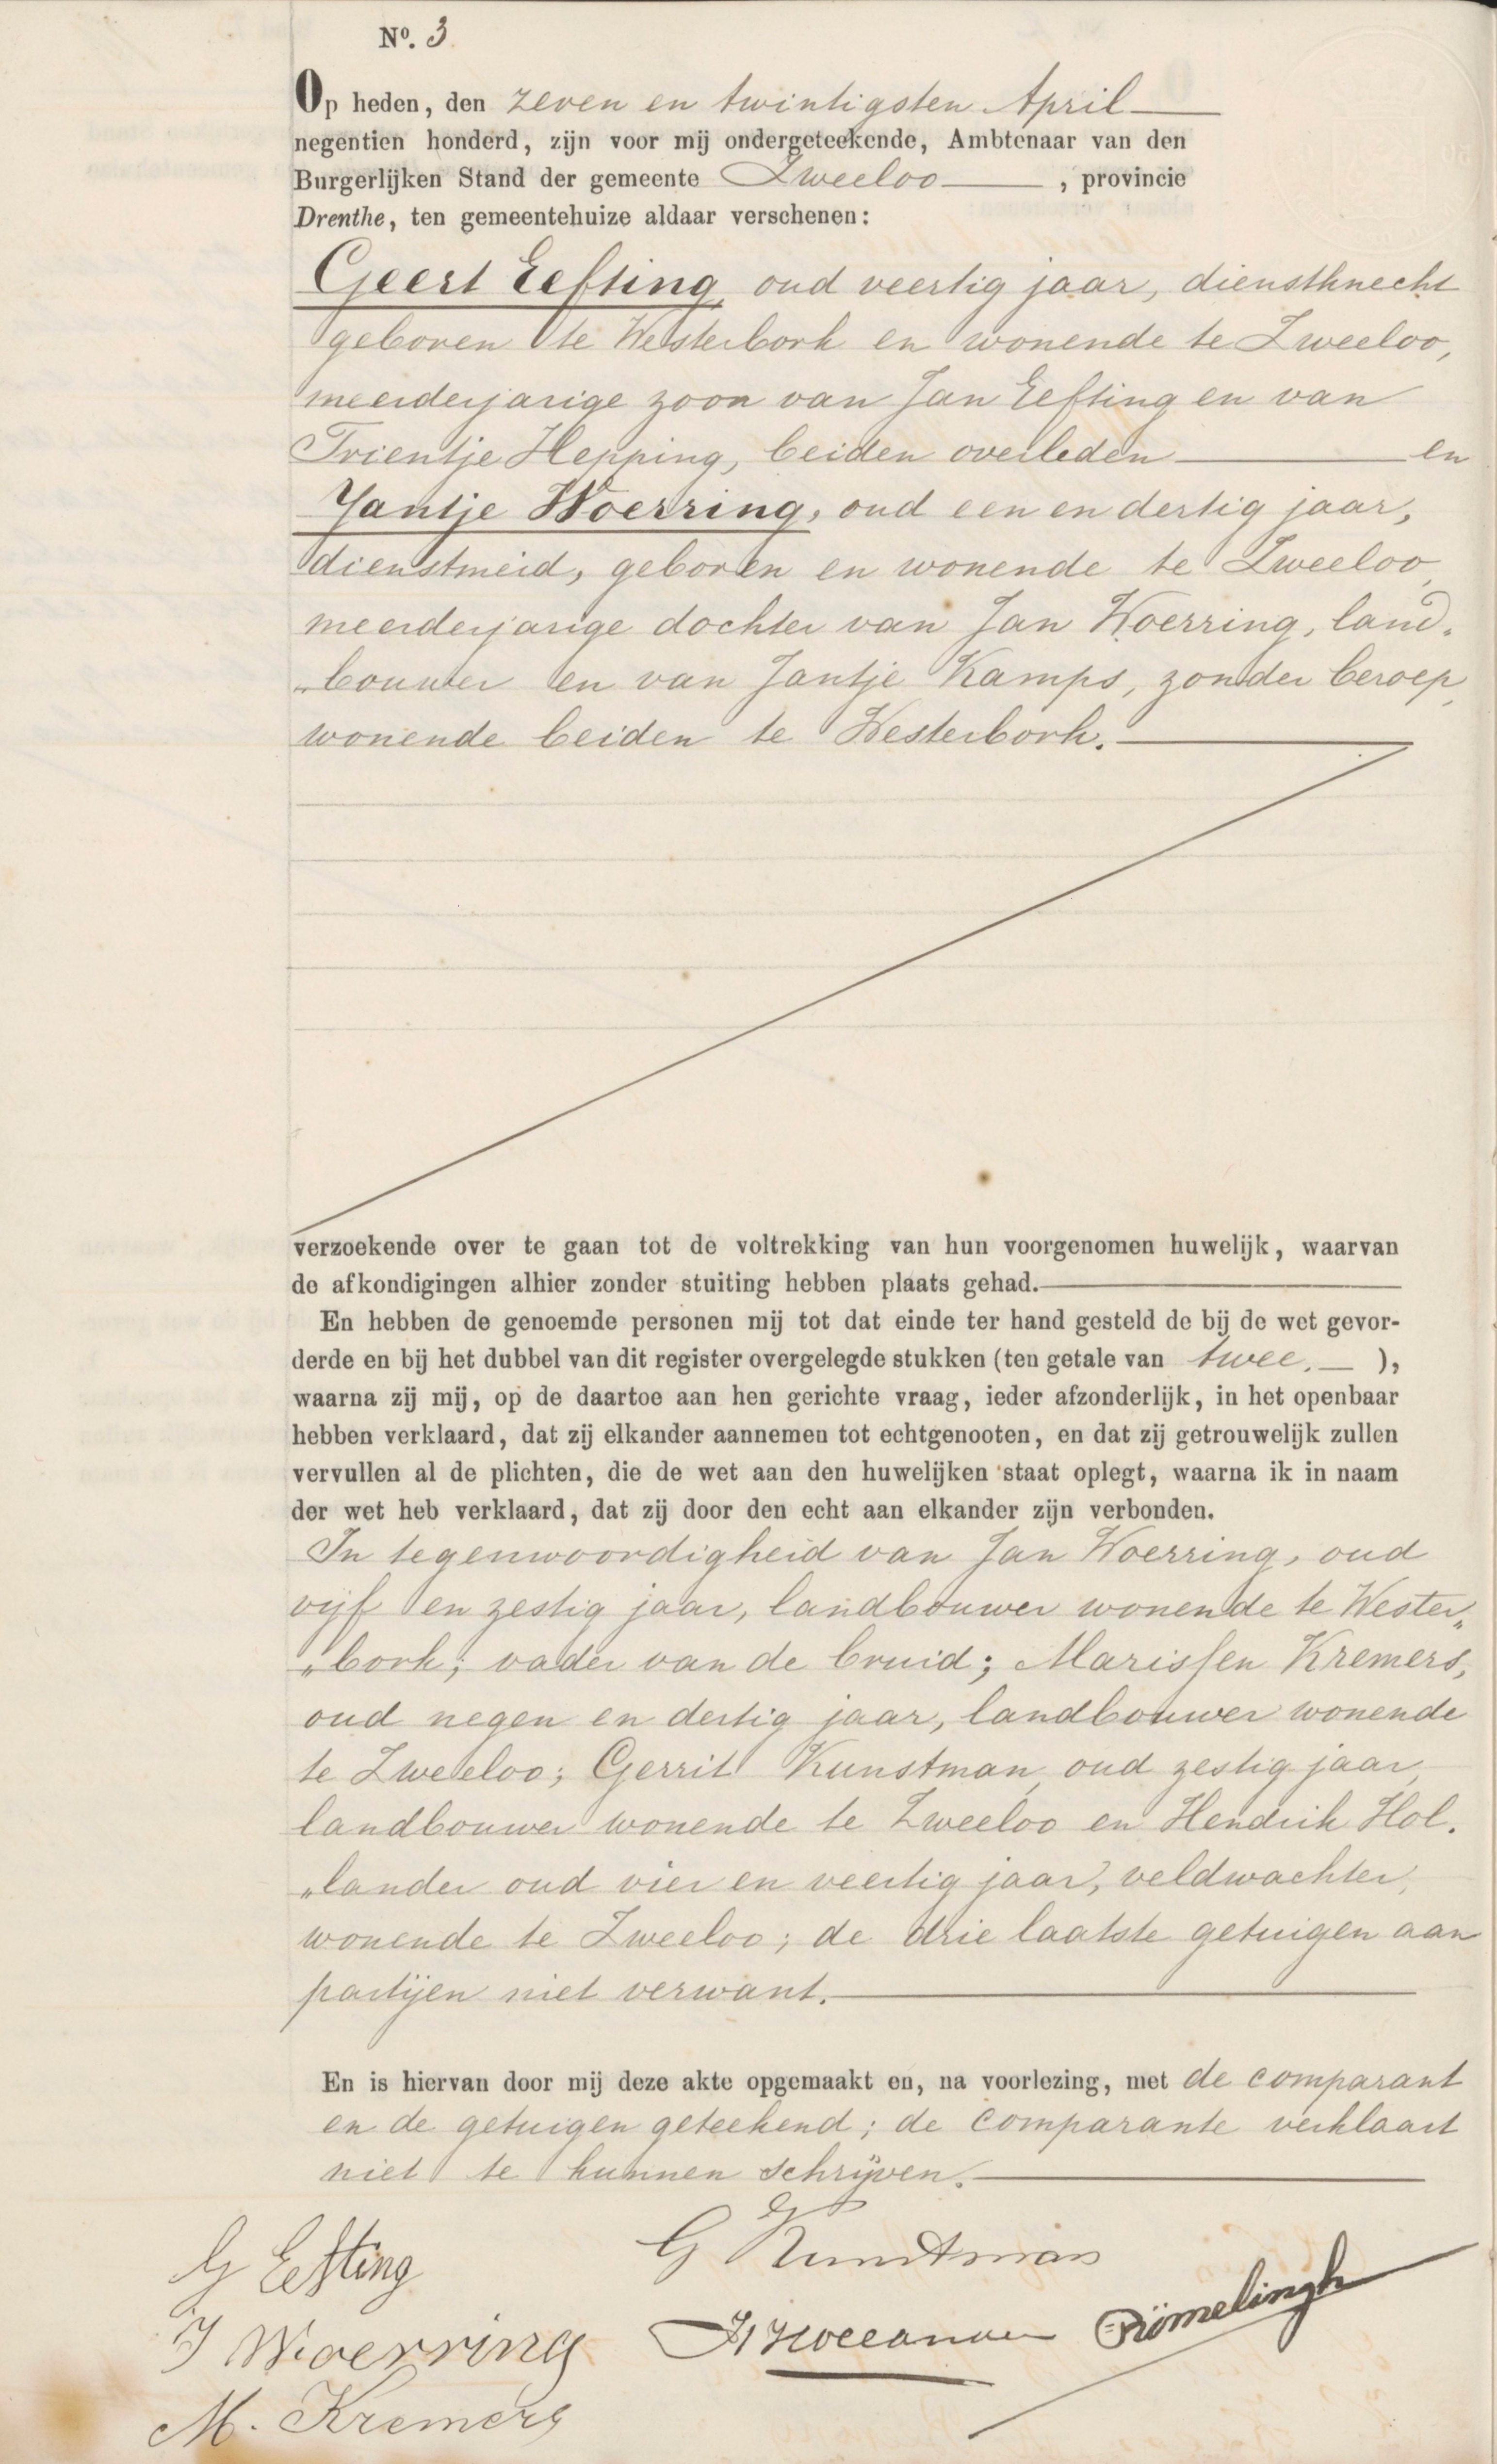 Nº. 3
Op heden, den zeven en twintigsten April
negentien honderd, zijn voor mij ondergeteekende, Ambtenaar van den
Burgerlijken Stand der gemeente Zweeloo, provincie
Drenthe, ten gemeentehuize aldaar verschenen:
Geert Eefting, oud veertig jaar, dienstknecht
geboren te Westerbork en wonende te Zweeloo,
meerderjarige zoon van Jan Eefting en van
Trientje Hepping, beiden overleden en
Jantje Woerring, oud een en dertig jaar,
dienstmeid, geboren en wonende te Zweeloo,
meerderjarige dochter van Jan Woerring, land„
„bouwer en van Jantje Kamps, zonder beroep,
wonende beiden te Westerbork.
verzoekende over te gaan tot de voltrekking van hun voorgenomen huwelijk, waarvan
de afkondigingen alhier zonder stuiting hebben plaats gehad.
En hebben de genoemde personen mij tot dat einde ter hand gesteld de bij de wet gevor-
derde en bij het dubbel van dit register overgelegde stukken (ten getale van twee. ),
waarna zij mij, op de daartoe aan hen gerichte vraag, ieder afzonderlijk, in het openbaar
hebben verklaard, dat zij elkander aannemen tot echtgenooten, en dat zij getrouwelijk zullen
vervullen al de plichten, die de wet aan den huwelijken staat oplegt, waarna ik in naam
der wet heb verklaard, dat zij door den echt aan elkander zijn verbonden.
In tegenwoordigheid van Jan Woerring, oud
vijf en zestig jaar, landbouwer wonende te Wester„
„bork; vader van de bruid; Marissen Kremers,
oud negen en dertig jaar, landbouwer wonende
te Zweeloo; Gerrit Kunstman, oud zestig jaar,
landbouwer wonende te Zweeloo en Hendrik Hol„
„lander oud vier en veertig jaar, veldwachter,
wonende te Zweeloo; de drie laatste getuigen aan
partijen niet verwant.
En is hiervan door mij deze akte opgemaakt en, na voorlezing, met de comparant
en de getuigen geteekend; de comparante verklaart
niet te kunnen schrijven.
G Eefting
G Kunstman
J Woerring
H Hollander
Römelingh
M. Kremers